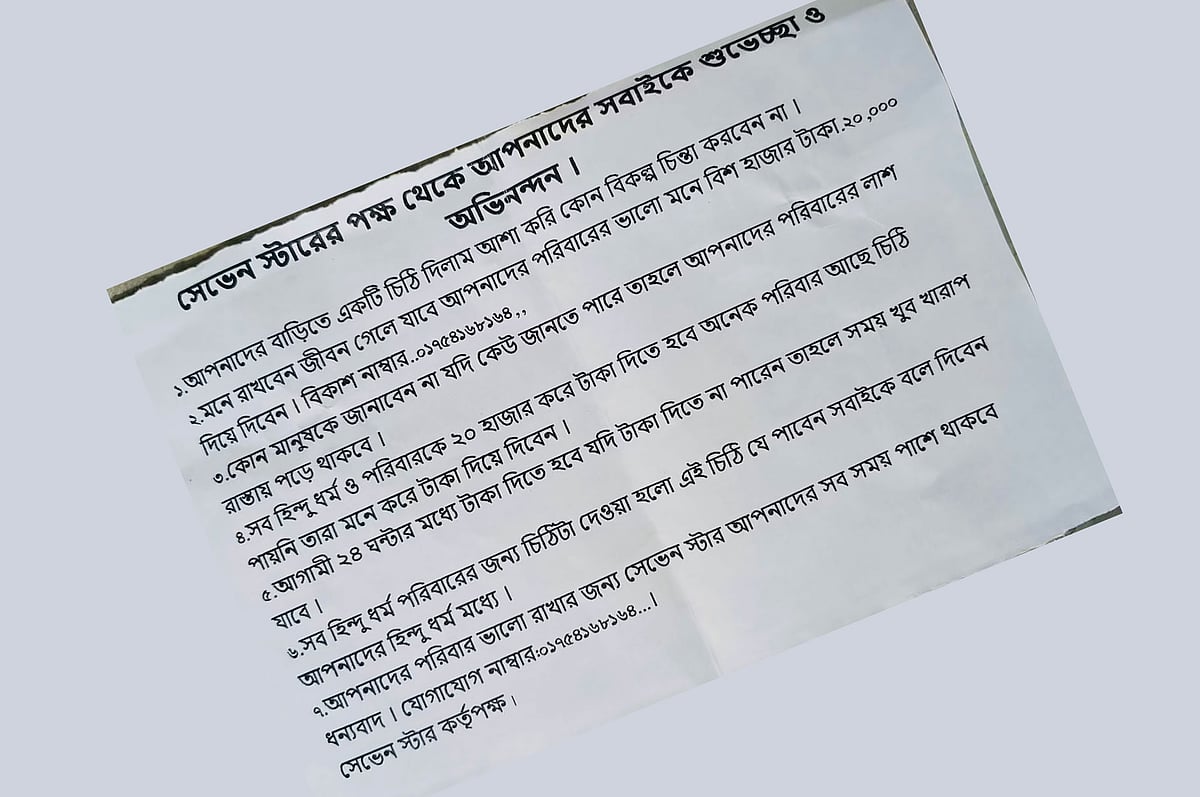 সেভেন স্টারের পক্ষ থেকে আপনাদের সবাইকে শুভেচ্ছা ও
অভিনন্দন ।
১.আপনাদের বাড়িতে একটি চিঠি দিলাম আশা করি কোন বিকল্প চিন্তা করবেন না ।
২.মনে রাখবেন জীবন গেলে যাবে আপনাদের পরিবারের ভালো মনে বিশ হাজার টাকা.২০,০০০
দিয়ে দিবেন । বিকাশ নাম্বার..০১৭৫৪১৬৮১৬৪,,
৩.কোন মানুষকে জানাবেন না যদি কেউ জানতে পারে তাহলে আপনাদের পরিবারের লাশ
রাস্তায় পড়ে থাকবে ।
৪.সব হিন্দু ধর্ম ও পরিবারকে ২০ হাজার করে টাকা দিতে হবে অনেক পরিবার আছে চিঠি
পায়নি তারা মনে করে টাকা দিয়ে দিবেন ।
৫.আগামী ২৪ ঘন্টার মধ্যে টাকা দিতে হবে যদি টাকা দিতে না পারেন তাহলে সময় খুব খারাপ
যাবে ।
৬.সব হিন্দু ধর্ম পরিবারের জন্য চিঠিটা দেওয়া হলো এই চিঠি যে পাবেন সবাইকে বলে দিবেন
আপনাদের হিন্দু ধর্ম মধ্যে ।
৭.আপনাদের পরিবার ভালো রাখার জন্য সেভেন স্টার আপনাদের সব সময় পাশে থাকবে
ধন্যবাদ । যোগাযোগ নাম্বার:০১৭৫৪১৬৮১৬৪...।
সেভেন স্টার কর্তৃপক্ষ ।